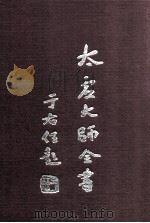 太虛大師全書
于右任題